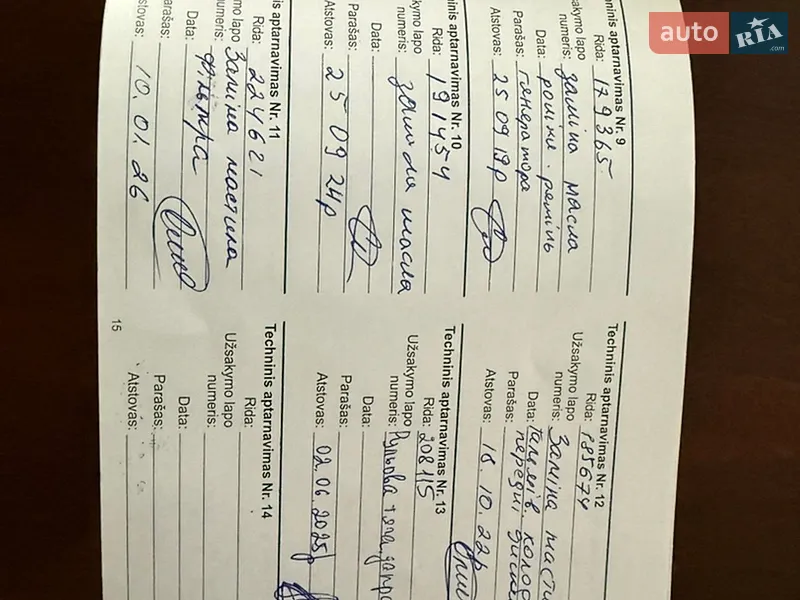 auto RIA.com
Techninis aptarnavimas Nr. 9
Rida: 179365
Užsakymo lapo
numeris: заміна масла
Data: роліки. ремінь
Parašas: генератора
Atstovas: 25 09 19р
Techninis aptarnavimas Nr. 10
Rida: 191454
Užsakymo lapo
numeris: заміна масла
Data:
Parašas:
Atstovas: 25 09 24р
Techninis aptarnavimas Nr. 11
Rida: 224621
Užsakymo lapo Заміна мастила
numeris: фільтра
Data:
Parašas:
Atstovas: 10.01.26
15
Techninis aptarnavimas Nr. 12
Rida: 185674
Užsakymo lapo
numeris: Заміна масти
Data: Гальмів. колод
Parašas: передні диски
Atstovas: 18.10.22р
Techninis aptarnavimas Nr. 13
Rida: 208115
Užsakymo lapo
numeris: Рульова тяга
Data:
Parašas:
Atstovas: 02.06.2025р
Techninis aptarnavimas Nr. 14
Rida:
Užsakymo lapo
numeris:
Data:
Parašas:
Atstovas: